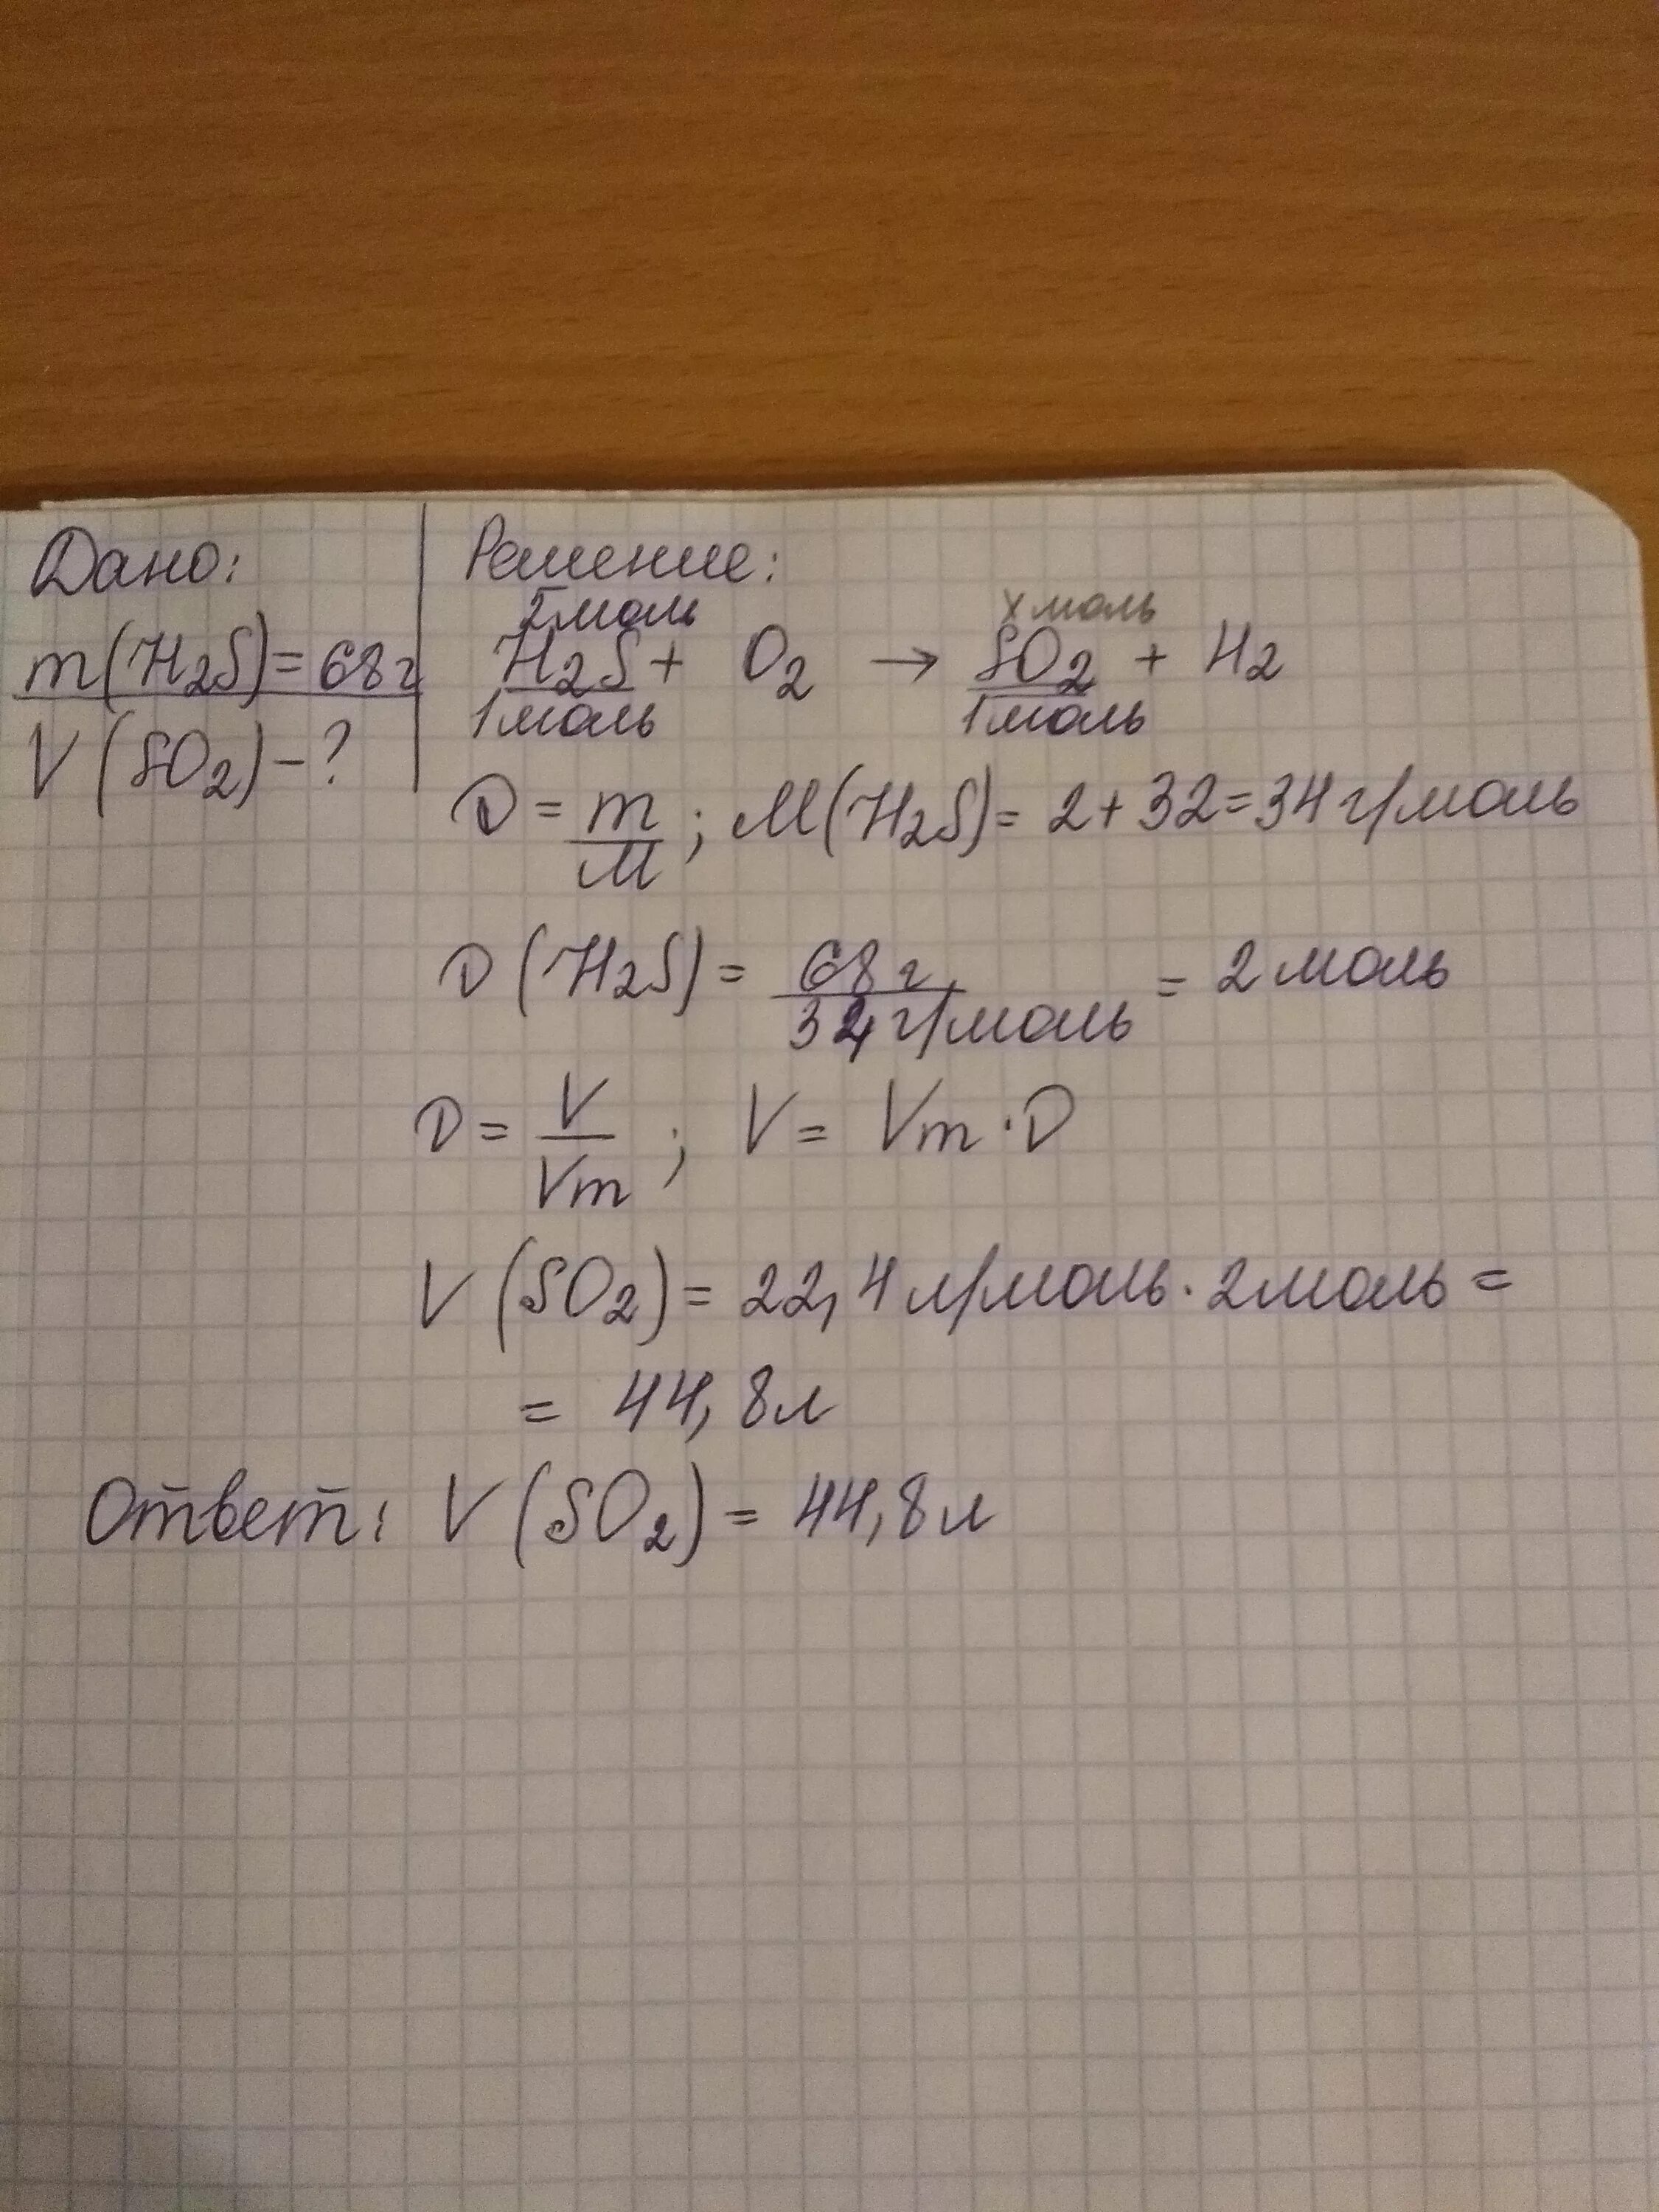 Дано:
m(H2S)=68г
V(SO2)-?
Решение:
2моль хмоль
H2S+ O2 → SO2 + H2
1моль 1моль
D = m/M ; M(H2S)= 2+32=34г/моль
D(H2S)= 68г/34г/моль = 2моль
D = V/Vm ; V= Vm·D
V(SO2)=22,4л/моль·2моль=
= 44,8л
Ответ: V(SO2)=44,8л